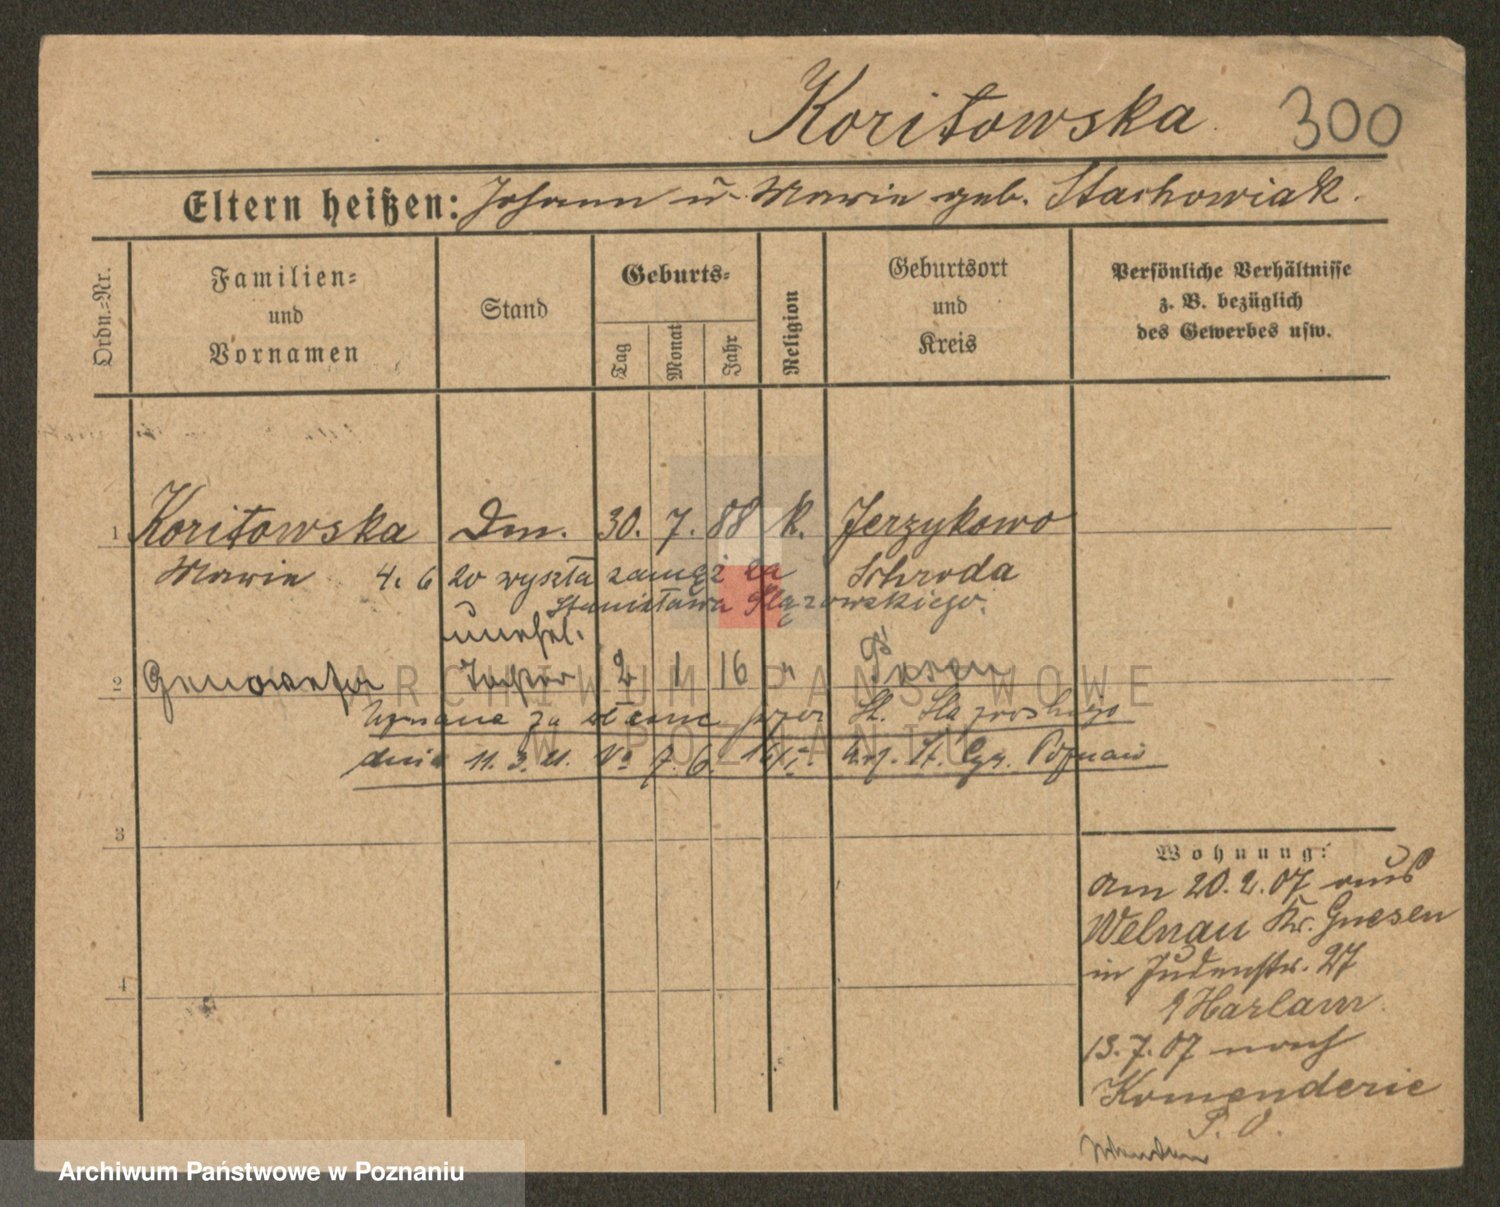 Koritowska 300
Eltern heißen: Johann u. Marie geb. Stachowiak.
Ordn.-Nr.
Familien- und Vornamen
Stand
Geburts-
Tag
Monat
Jahr
Religion
Geburtsort und Kreis
Persönliche Verhältnisse z. B. bezüglich des Gewerbes usw.
1 Koritowska Dm. 30. 7. 88 k. Jerzykowo
Marie 4. 6 20 wyszła zamęż za Schroda
Stanisława
unehel.
2 Genowefa Tochter 2 1 16 " Posen
Uznana za przez St.
dnia 11. 3. 21. No
3
4
Wohnung:
am 20. 2. 07 aus
Welnau Kr. Gnesen
in Judenstr. 27
Harlam
13. 7. 07 nach
Komenderie
P. O.
ARCHIWUM PAŃSTWOWE
W POZNANIU
Archiwum Państwowe w Poznaniu